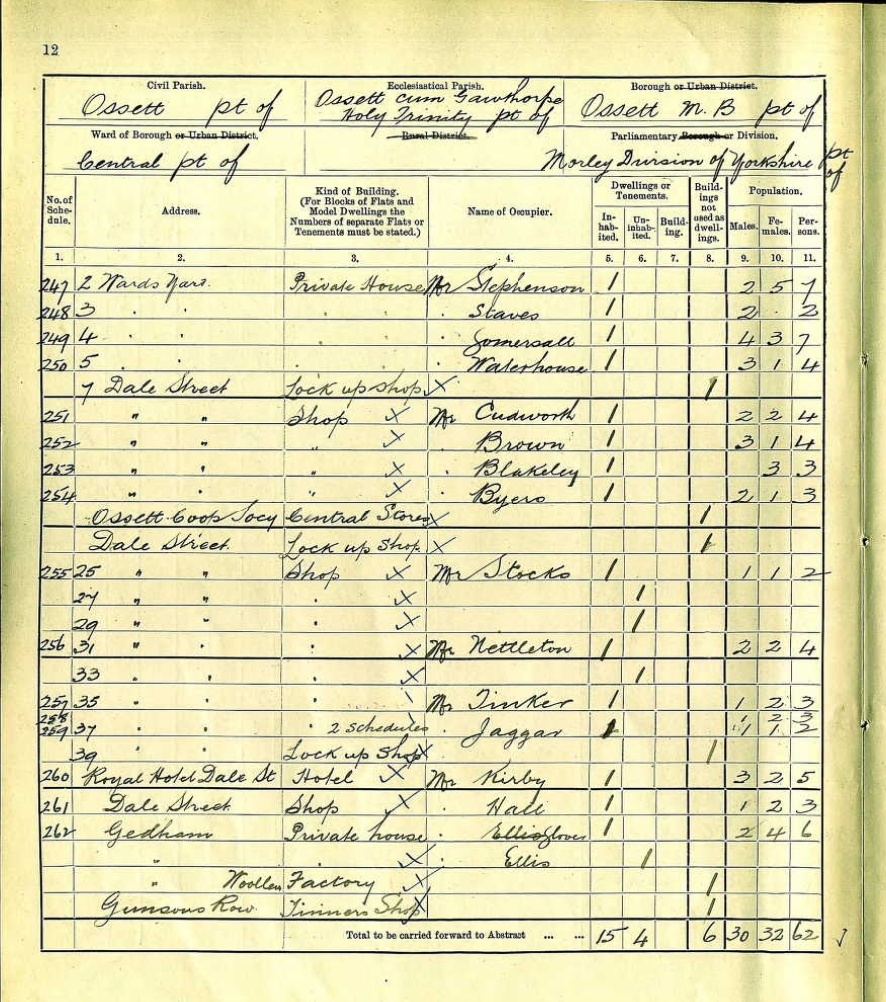 12
Civil Parish. Ecclesiastical Parish. Borough or Urban District.
Ossett pt of Ossett cum Gawthorpe Holy Trinity pt of Ossett M.B pt of
Ward of Borough or Urban District. Rural District. Parliamentary Borough or Division.
Central pt of Morley Division of Yorkshire pt of
No. of Schedule. Address. Kind of Building. (For Blocks of Flats and Model Dwellings the Numbers of separate Flats or Tenements must be stated.) Name of Occupier. Dwellings or Tenements. Inhabited. Uninhabited. Building. Buildings not used as dwellings. Population. Males. Females. Persons.
1. 2. 3. 4. 5. 6. 7. 8. 9. 10. 11.
247 2 Wards Yard Private House Mr Stephenson 1 2 5 7
248 3 " " " " Staves 1 2 . 2
249 4 " " " " Somersall 1 4 3 7
250 5 " " " " Waterhouse 1 3 1 4
7 Dale Street Lock up shop X 1
251 " " Shop X Mr Cudworth 1 2 2 4
252 " " " X " Brown 1 3 1 4
253 " " " X " Blakeley 1 3 3
254 " " " X " Byers 1 2 1 3
Ossett Coop Socy Central Stores X 1
Dale Street Lock up Shop X 1
255 25 " " Shop X Mr Stocks 1 1 1 2
27 " " " X 1
29 " " " X 1
256 31 " " " X Mr Nettleton 1 2 2 4
33 " " " X 1
257 35 " " " Mr Tinker 1 1 2 3
258 1 2 3
259 37 " " " 2 schedules " Jaggar 1 1 1 2
39 " " Lock up Shop X 1
260 Royal Hotel Dale St Hotel X Mr Kirby 1 3 2 5
261 Dale Street Shop X " Hall 1 1 2 3
262 Gedham Private house " Ellis Glover 1 2 4 6
" " X " Ellis 1
" Woollen Factory X 1
Gunsons Row Tinners Shop X 1
Total to be carried forward to Abstract ... ... 15 4 6 30 32 62